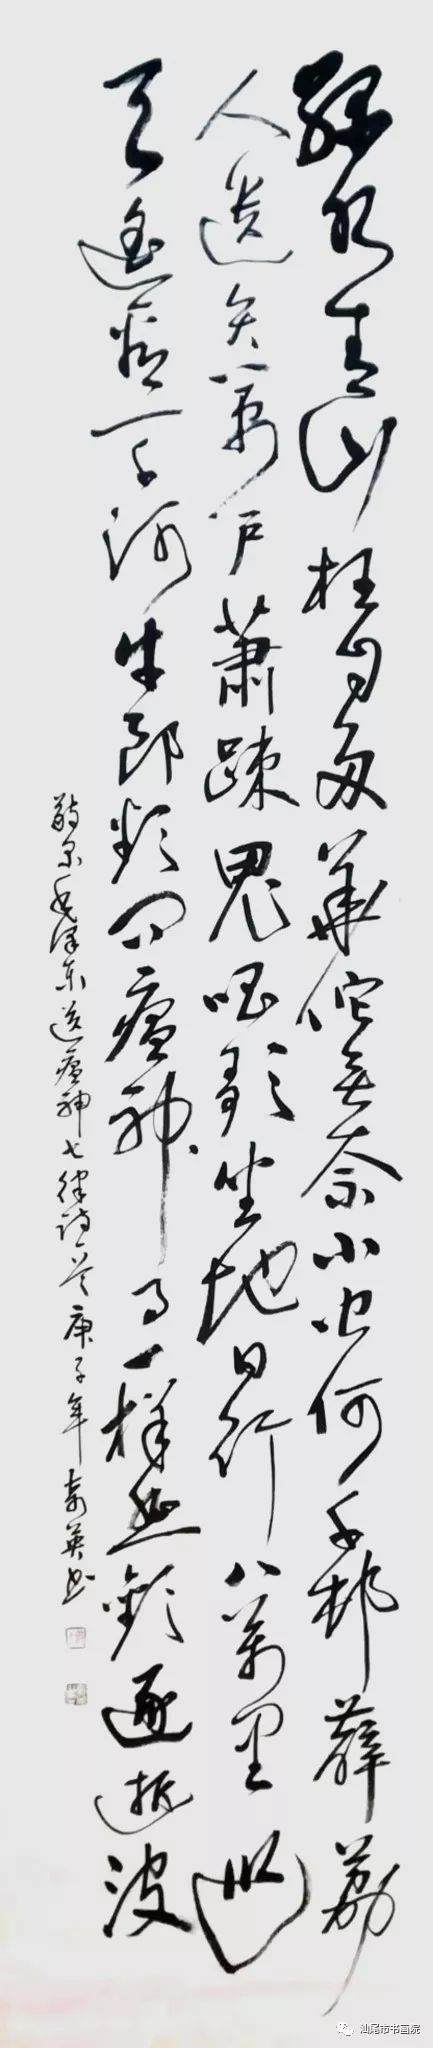 緑水青山枉自多華佗無奈小虫何千村薜荔
人遺矢萬户蕭疎鬼唱歌坐地日行八萬里巡
天遥看一千河牛郎欲问瘟神事一樣悲歡逐逝波
敬录毛泽东送瘟神七律诗一首庚子年英书
汕尾市书画院